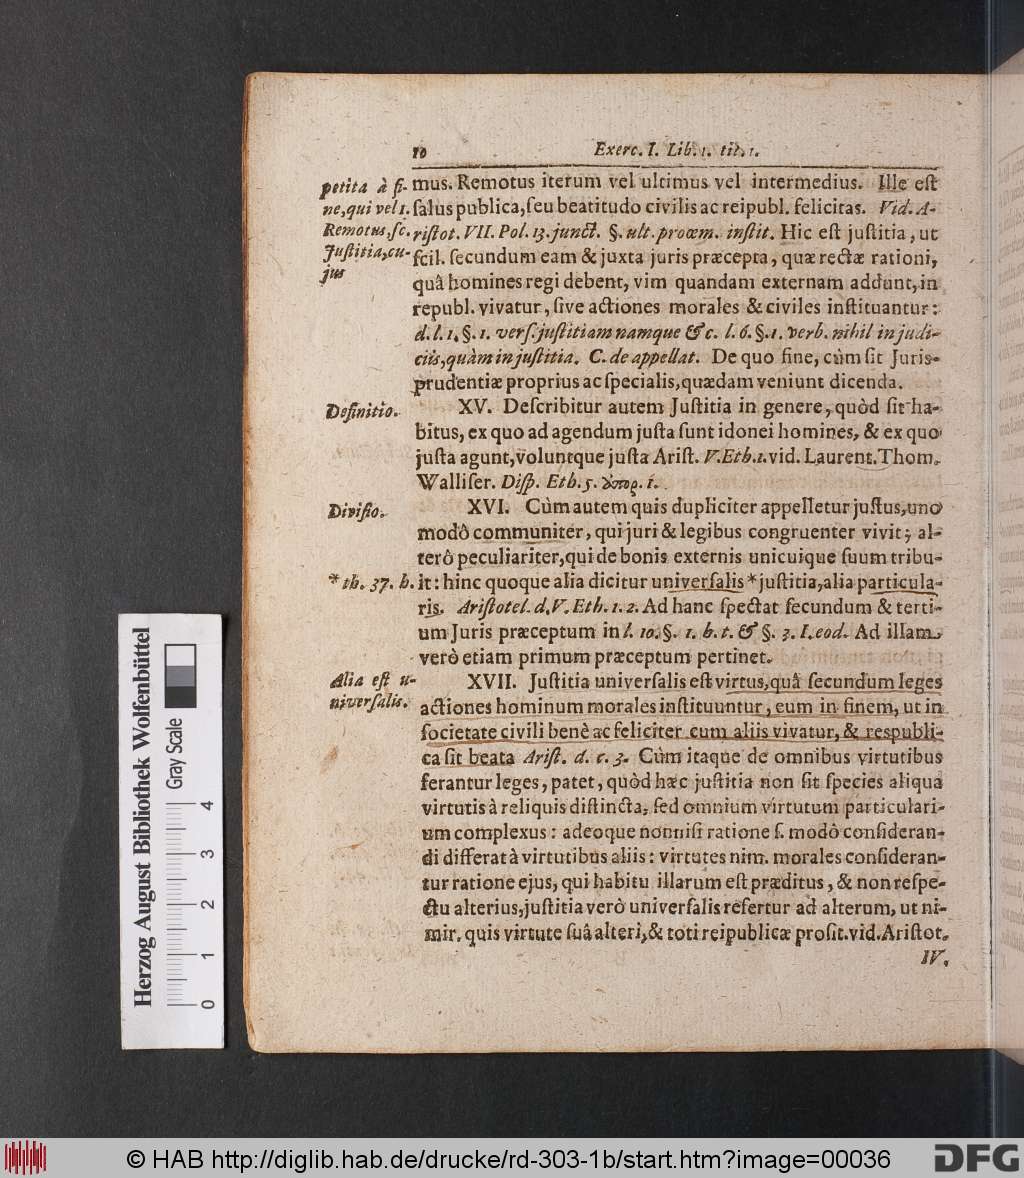 10 Exerc. I. Lib. 1. tit. 1.
petita à fi-
ne, qui vel 1.
Remotus, sc.
Justitia, cu-
jus
mus. Remotus iterum vel ultimus vel intermedius. Ille eſt
ſalus publica, ſeu beatitudo civilis ac reipubl. felicitas. Vid. A-
riſtot. VII. Pol. 13. junct. §. ult. proœm. inſtit. Hic eſt juſtitia, ut
ſcil. ſecundum eam & juxta juris præcepta, quæ rectæ rationi,
quâ homines regi debent, vim quandam externam addunt, in
republ. vivatur, ſive actiones morales & civiles inſtituantur:
d. l. 1. §. 1. verſ. juſtitiam namque & c. l. 6. §. 1. verb. nihil in judi-
ciis, quàm injuſtitia. C. de appellat. De quo fine, cùm ſit Juris-
prudentiæ proprius ac ſpecialis, quædam veniunt dicenda.
Definitio.
XV. Deſcribitur autem Juſtitia in genere, quòd ſit ha-
bitus, ex quo ad agendum juſta ſunt idonei homines, & ex quo
juſta agunt, voluntque juſta Ariſt. V. Eth. 1. vid. Laurent. Thom.
Walliſer. Diſp. Eth. 5. 1.
Diviſio.
XVI. Cùm autem quis dupliciter appelletur juſtus, uno
modô communiter, qui juri & legibus congruenter vivit; al-
terô peculiariter, qui de bonis externis unicuique ſuum tribu-
* th. 37. h.
it: hinc quoque alia dicitur univerſalis * juſtitia, alia particula-
ris. Ariſtotel. d. V. Eth. 1. 2. Ad hanc ſpectat ſecundum & terti-
um Juris præceptum in l. 10. §. 1. h. t. & §. 3. I. eod. Ad illam
verò etiam primum præceptum pertinet.
Alia eſt u-
niverſalis.
XVII. Juſtitia univerſalis eſt virtus, quâ ſecundum leges
actiones hominum morales inſtituuntur, eum in finem, ut in
ſocietate civili benè ac feliciter cum aliis vivatur, & respubli-
ca ſit beata Ariſt. d. c. 3. Cùm itaque de omnibus virtutibus
ferantur leges, patet, quòd hæc juſtitia non ſit ſpecies aliqua
virtutis à reliquis diſtincta, ſed omnium virtutum particulari-
um complexus: adeoque nonniſi ratione ſ. modò conſideran-
di differat à virtutibus aliis: virtutes nim. morales conſideran-
tur ratione ejus, qui habitu illarum eſt præditus, & non reſpe-
ctu alterius, juſtitia verò univerſalis refertur ad alterum, ut ni-
mir. quis virtute ſuâ alteri, & toti reipublicæ proſit. vid. Ariſtot.
IV.
Herzog August Bibliothek Wolfenbüttel
Gray Scale
0 1 2 3 4
© HAB http://diglib.hab.de/drucke/rd-303-1b/start.htm?image=00036
DFG